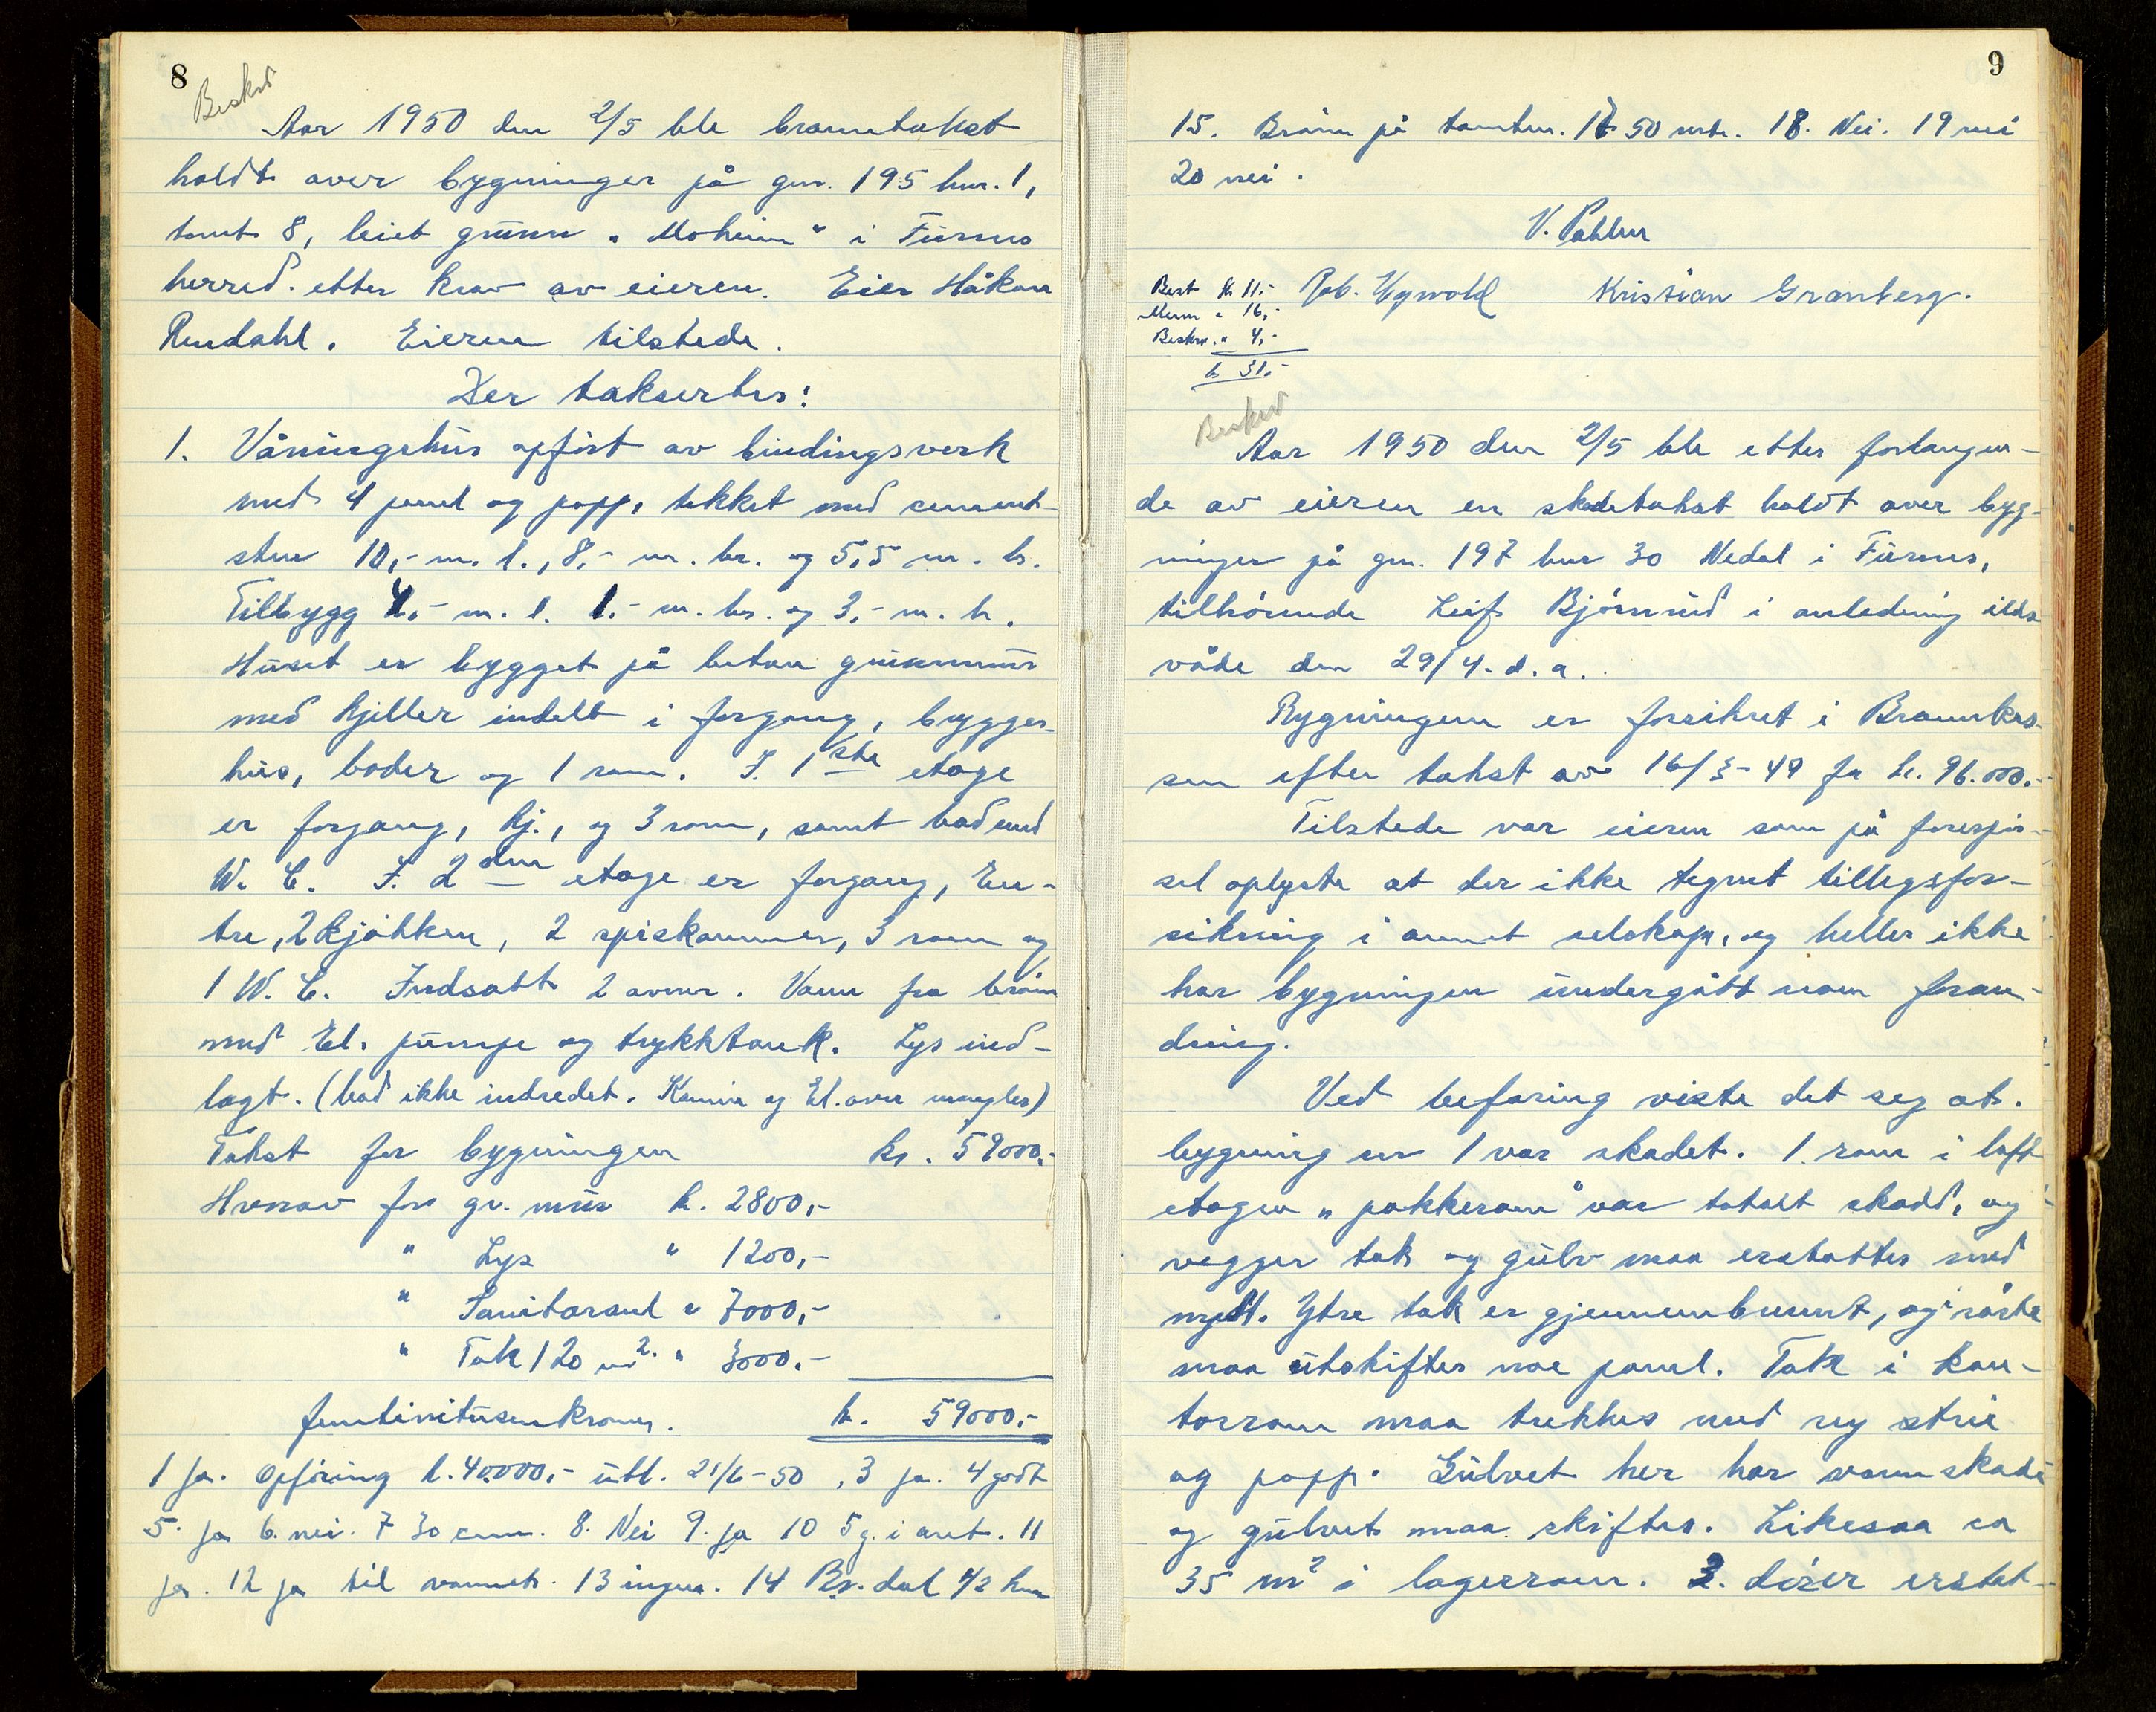 8
Beskrd
Aar 1950 den 2/5 ble branntakst
holdt over bygninger på gnr. 195 bnr. 1,
tomt 8, leiet grunn "Moheim" i Furnes
herred. etter krav av eieren. Eier Håkon
Rendahl. Eieren tilstede.
Der taksertes:
1. Våningshus opført av bindingsverk
med 4 panel og papp, tekket med cement-
stene 10,- m. l., 8,- m. br. og 5,5 m. h.
Tilbygg 4,- m. l. 1,- m. br. og 3,- m. h.
Huset er bygget på betong grunnmur
med kjeller indelt i forgang, brygger-
hus, boder og 1 rom. I 1ste etage
er forgang, kj., og 3 rom, samt bad med
W. C. I 2den etage er forgang, En-
tre, 2 kjøkken, 2 spiskammer, 3 rom og
1 W. C. Indsatt 2 ovner. Vann fra brønn
med El. pumpe og trykktank. Lys ind-
lagt. (bad ikke indredet. Kamin og El. ovn mangler)
Takst for bygningen kr. 59000,-
Hvorav for gr. mur kr. 2800,-
" Lys " 1200,-
" Sanitæranl " 7000,-
" Tak 120 m2. " 3000,-
femtinitusenkroner. kr. 59000,-
1 ja. Opføring k. 40.000,- utl. 21/6-50, 3 ja. 4 godt
5. ja 6. nei. 7 30 cm. 8. Nei 9. ja 10 5 g. i året. 11
ja. 12 ja til vannet. 13 ingen. 14 Br.dal 1/2 km
9
15. Brønn på tomten. 16 50 mtr. 18. Nei. 19 nei
20 nei.
V. Pahlm
Best kr 11,-
" 16,-
Beskr. " 4,-
kr 31,-
Kristian Granberg.
Beskrd
Aar 1950 den 2/5 ble etter forlangen-
de av eieren en skadetakst holdt over byg-
ninger på gnr. 197 bnr 30 Nedal i Furnes,
tilhørende Leif Bjørnrud i anledning ilds
våde den 29/4. d. a.
Bygningen er forsikret i Brannkas-
sen efter takst av 16/3-49 for kr. 96.000.-
Tilstede var eieren som på forespør-
sel oplyste at der ikke tegnet tillegsfor-
sikring i annet selskap, og heller ikke
har bygningen undergått noen foran-
dring.
Ved befaring viste det seg at.
bygning nr 1 var skadet. 1. rom i loft
etagen "pakkerom" var totalt skadd, og
vegger tak og gulv maa erstattes med
nytt. Ytre tak er gjennembrennt, og i røste
maa utskiftes noe panel. Tak i kon-
torrom maa trekkes med ny strie
og papp. Gulvet her har vannskade
og gulvet maa skiftes. Likesaa ca
35 m2 i lagerrom. 2. dører erstat-